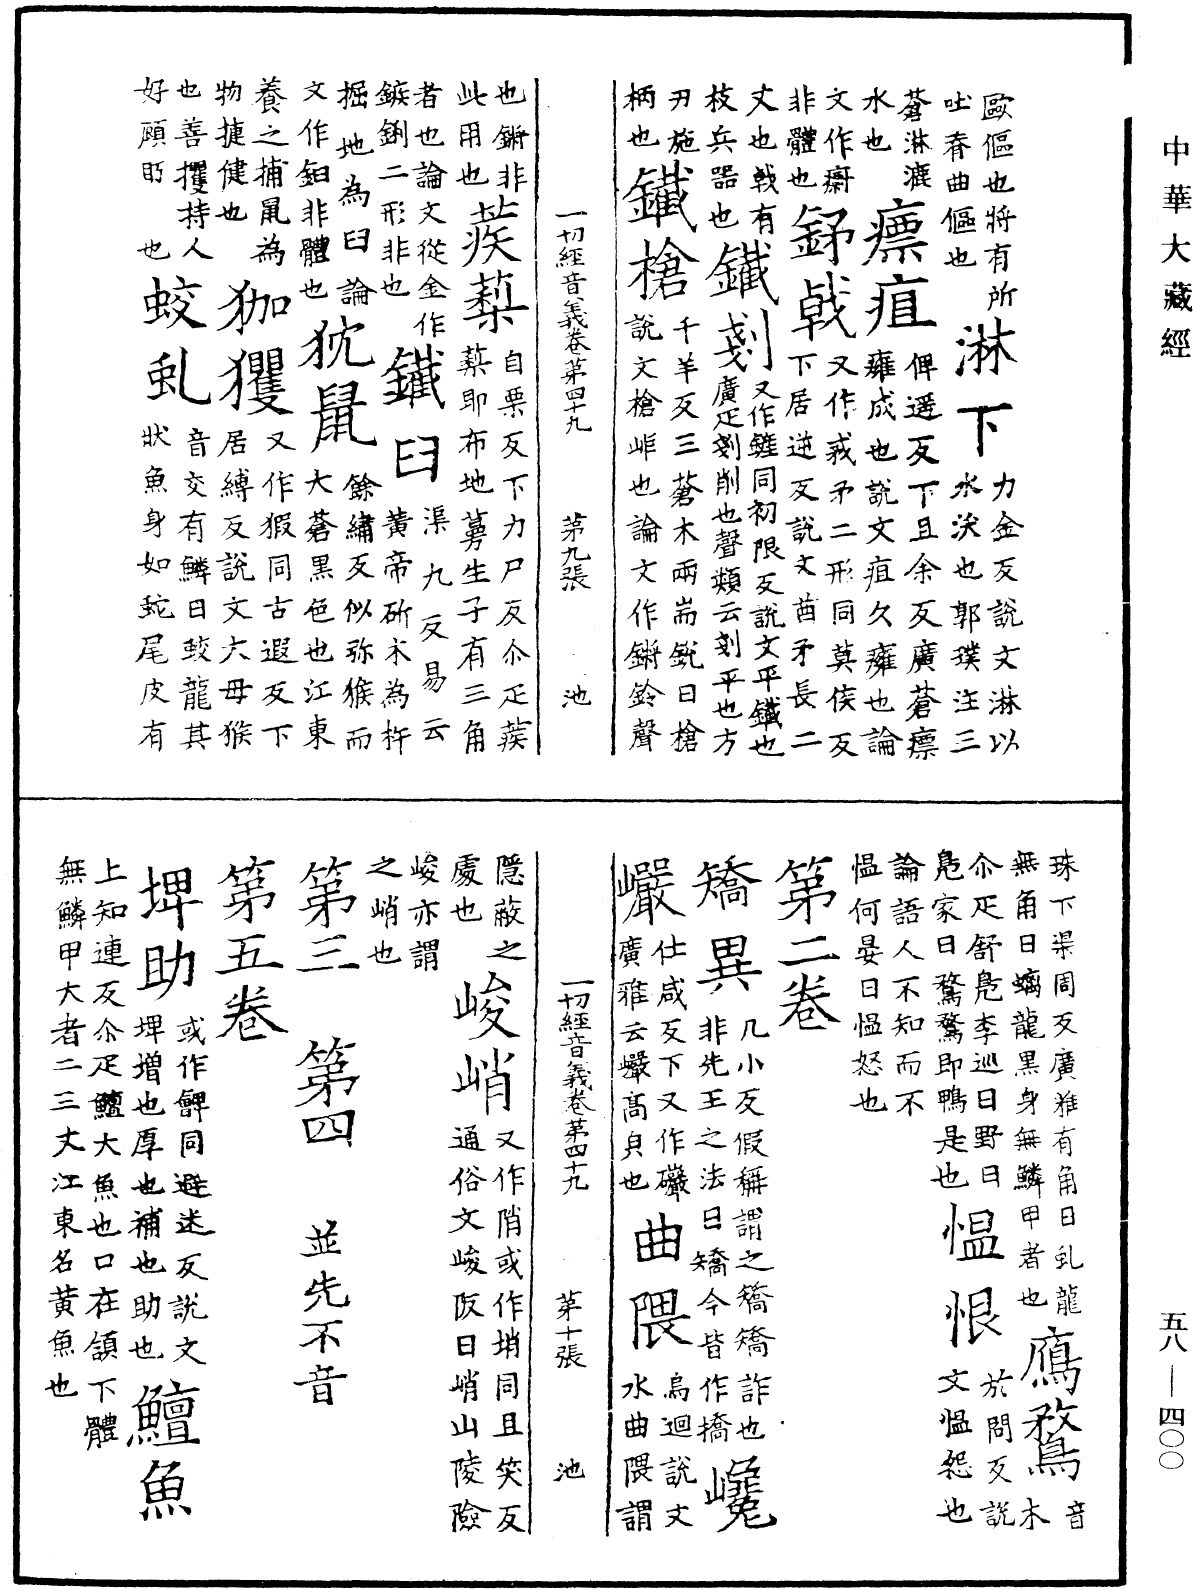 中華大藏經
歐傴也將有所
吐脊曲傴也
淋下
力金反説文淋以
水沃也郭璞注三
蒼淋漉
水也
瘭疽
俾遥反下且余反廣蒼瘭
癰成也説文疽久癰也論
文作癠
非體也
鉾戟
又作𢦧矛二形同莫侯反
下居逆反説文酋矛長二
丈也戟有
枝兵器也
鐵剗
又作鏟同初限反説文平鐵也
廣疋剗削也聲類云剗平也方
刃施
柄也
鐵槍
千羊反三蒼木兩耑鋭曰槍
説文槍岠也論文作鏘鈴聲
一切經音義卷第四十九 第九張 池
也鏘非
此用也
蒺蔾
自栗反下力尸反尒疋蒺
蔾即布地蔓生子有三角
者也論文從金作
鏃鋓二形非也
鐵臼
渠九反易云
黄帝斫木為杵
掘地為臼論
文作鉑非體也
狖鼠
餘繡反似弥猴而
大蒼黒色也江東
養之捕鼠為
物捷健也
狐玃
又作猳同古遐反下
居縛反説文大母猴
也善攫持人
好顧眄也
蛟虬
音交有鱗曰蛟龍其
狀魚身如蛇尾皮有
珠下渠周反廣雅有角曰虬龍
無角曰螭龍黒身無鱗甲者也
鴈鶩
音
木
尒疋舒鳧李巡曰野曰
鳧家曰鶩鶩即鴨是也
愠恨
於問反説
文愠怨也
論語人不知而不
愠何晏曰愠怒也
第二卷
矯異
几小反假稱謂之矯矯詐也
非先王之法曰矯今皆作撟
巉巖
仕咸反下又作礹
廣雅云巖高皃也
曲隈
烏迴説文
水曲隈謂
一切經音義卷第四十九 第十張 池
隱蔽之
處也
峻峭
又作陗或作㟓同且笑反
通俗文峻阪曰峭山陵險
峻亦謂
之峭也
第三 第四 並先不音
第五卷
埤助
或作𩫼同避迷反説文
埤增也厚也補也助也
鱣魚
上知連反尒疋鱣大魚也口在頷下體
無鱗甲大者二三丈江東名黄魚也
五八—四〇〇